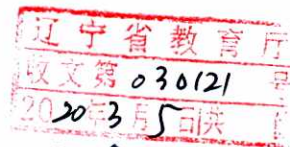 辽宁省教育厅
收文第030121号
2020年3月5日共